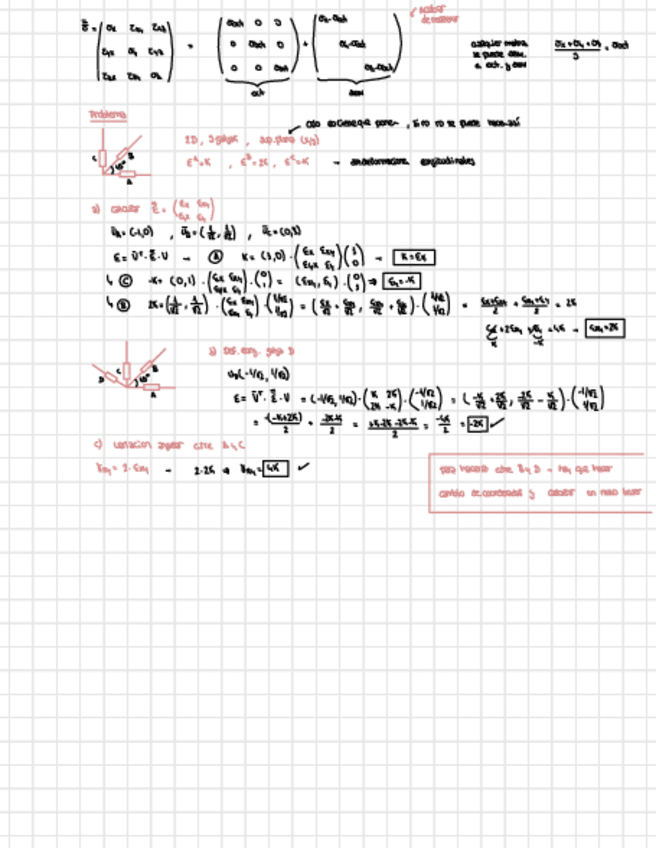 σ̿ = (σx τxy τxz; τyx σy τyz; τzx τzy σz) = (σoct 0 0; 0 σoct 0; 0 0 σoct) + (σx-σoct; σy-σoct; σz-σoct)
oct
cualquier matriz
se puede
a oct. y desv
(σx+σy+σz)/3 = σoct
Problema
2D, 3 galgas, sup. plana (x,y)
ε^A = K , ε^B = 2K , ε^C = -K → longitudinales
C B 45° A
a) calcular ε̿ = (εx εxy; εyx εy)
ūA = (1,0) , ūB = (1/√2, 1/√2) , ūC = (0,1)
ε = ūᵀ · ε̿ · ū → Ⓐ K = (1,0) · (εx εxy; εyx εy) (1; 0) → K = εx
↳ Ⓒ -K = (0,1) · (εx εxy; εyx εy) · (0; 1) = (εxy, εy) · (0; 1) ⇒ εy = -K
↳ Ⓑ 2K = (1/√2, 1/√2) · (εx εxy; εyx εy) · (1/√2; 1/√2) = (εx/√2 + εxy/√2, εxy/√2 + εy/√2) · (1/√2; 1/√2) = (εx+εxy)/2 + (εxy+εy)/2 = 2K
εx + 2εxy + εy = 4K → εxy = 2K
K -K
D C B 45° A
Def. long. galga D
uD (-1/√2, 1/√2)
ε = ūᵀ · ε̿ · ū = (-1/√2, 1/√2) · (K 2K; 2K -K) · (-1/√2; 1/√2) = (-K/√2 + 2K/√2, -2K/√2 - K/√2) · (-1/√2; 1/√2)
= -(-K+2K)/2 + (-2K-K)/2 = = -4K/2 = -2K ✓
c) variacion angular entre A y C
γxy = 2 · εxy → 2·2K ⇒ γxy = 4K ✓
para hacerlo entre B y D → hay que hacer
cambio de coordenadas y calcular en nuevo tensor